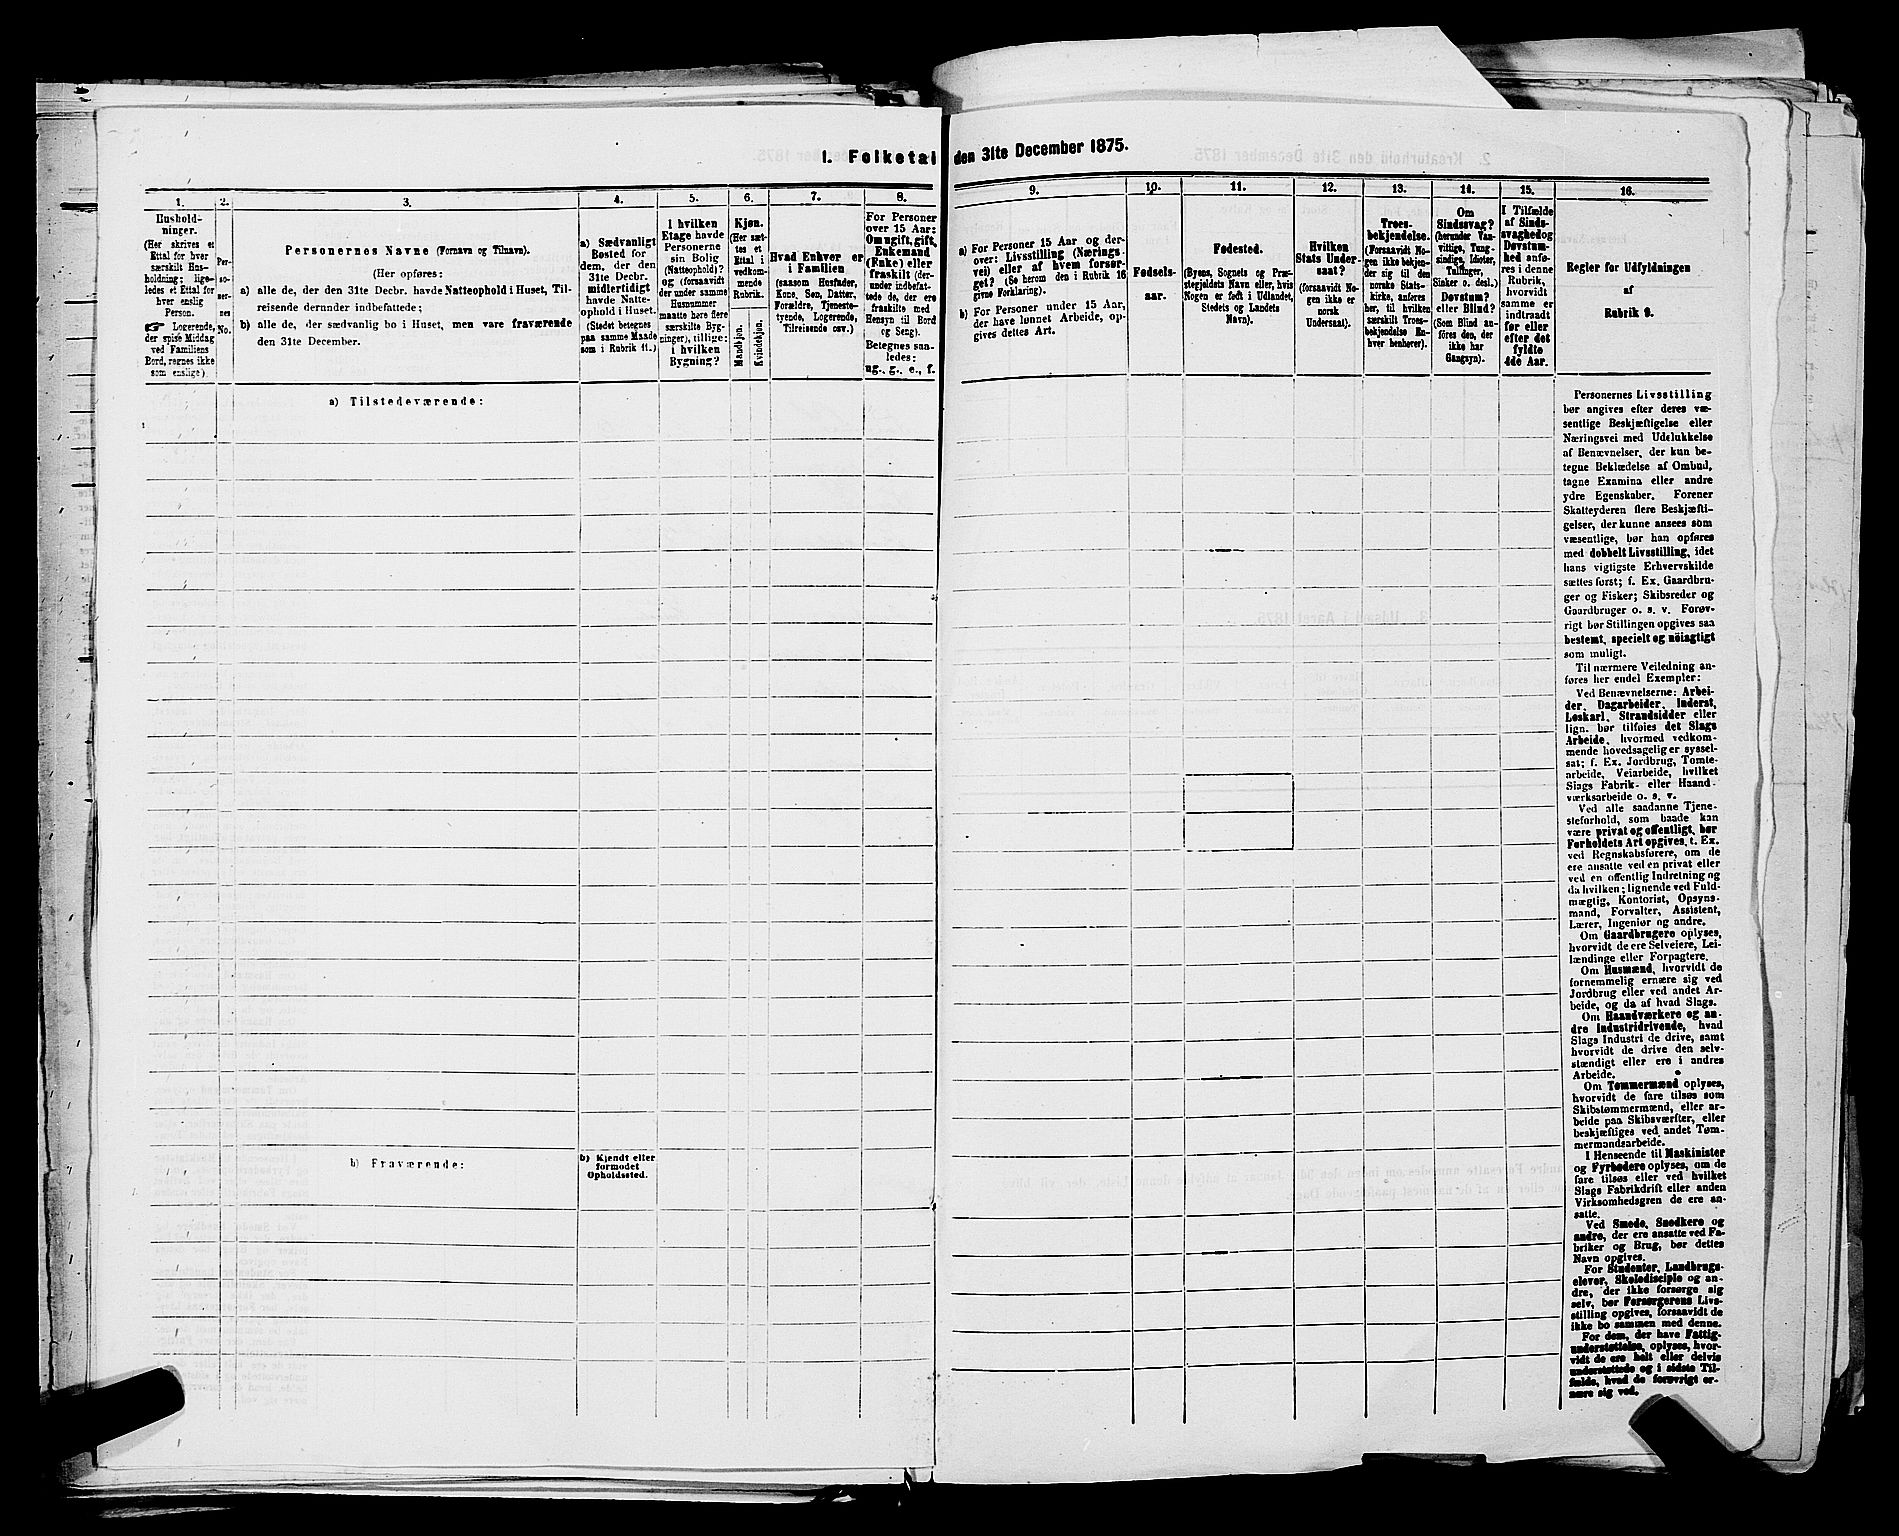 1. Folketal den 31te December 1875.
1.
Hushold-
ninger.
(Her skrives et
Ettal for hver
særskilt Hus-
holdning; lige-
ledes et Ettal for
hver enslig
Person.
☞ Logerende,
der spise Middag
ved Familiens
Bord, regnes ikke
som enslige).
2.
Per-
so-
ner-
nes
No.
3.
Personernes Navne (Fornavn og Tilnavn).
(Her opføres:
a) alle de, der den 31te Decbr. havde Natteophold i Huset, Til-
reisende derunder indbefattede;
b) alle de, der sædvanlig bo i Huset, men vare fraværende
den 31te December.
4.
a) Sædvanligt
Bosted for
dem, der den
31te Decbr.
midlertidigt
havde Natte-
ophold i Huset.
(Stedet betegnes
paa samme Maade
som i Rubrik 11.)
5.
I hvilken
Etage havde
Personerne
sin Bolig
(Natteophold)?
og (forsaavidt
der under samme
Husnummer
maatte høre flere
særskilte Byg-
ninger), tillige:
i hvilken
Bygning?
6.
Kjøn.
(Her sæt-
tes et
Ettal i
vedkom-
mende
Rubrik.
Mandkjøn.
Kvindekjøn.
7.
Hvad Enhver er
i Familien
(saasom Husfader,
Kone, Søn, Datter,
Forældre, Tjeneste-
tyende, Logerende,
Tilreisende osv.)
8.
For Personer
over 15 Aar:
Om ugift, gift,
Enkemand
(Enke) eller
fraskilt (der-
under indbefat-
tede de, der ere
fraskilte med
Hensyn til Bord
og Seng).
Betegnes saa-
ledes:
ug., g., e., f.
9.
a) For Personer 15 Aar og der-
over: Livsstilling (Nærings-
vei) eller af hvem forsør-
get? (Se herom den i Rubrik 16
givne Forklaring).
b) For Personer under 15 Aar,
der have lønnet Arbeide, op-
gives dettes Art.
10.
Fødsels-
aar.
11.
Fødested.
(Byens, Sognets og Præ-
stegjeldets Navn eller, hvis
Nogen er født i Udlandet,
Stedets og Landets
Navn).
12.
Hvilken
Stats Under
saat?
(forsaavidt No-
gen ikke er
norsk
Undersaat).
13.
Troes-
bekjendelse.
(Forsaavidt No-
gen ikke bekjen-
der sig til den
norske Stats-
kirke, anføres
her, til hvilken
særskilt Troes-
bekjendelse En-
hver henhører).
14.
Om
Sindssvag?
(herunder Van-
vittige, Tung-
sindige, Idioter,
Tullinger,
Sinker o. desl.)
Døvstum?
eller Blind?
(Som Blind an-
føres den, der
ikke har
Gangsyn).
15.
I Tilfælde
af Sinds-
svaghed og
Døvstum-
hed anfø-
res i denne
Rubrik,
hvorvidt
samme er
indtraadt
før eller
efter det
fyldte
4de Aar.
16.
Regler for Udfyldningen
af
Rubrik 9.
a) Tilstedeværende:
b) Fraværende:
b) Kjendt eller
formodet
Opholdssted.
Personernes Livsstilling
bør angives efter deres væ-
sentlige Beskjæftigelse eller
Næringsvei med Udelukkelse
af Benævnelser, der kun be-
tegne Beklædelse af Ombud,
tagne Examina eller andre
ydre Egenskaber. Forener
Skatteyderen flere Beskjæfti-
gelser, der kunne ansees som
væsentlige, bør han opføres
med dobbelt Livsstilling, idet
hans vigtigste Erhvervskilde
sættes først; f. Ex. Gaardbru-
ger og Fisker; Skibsreder og
Gaardbruger o. s. v. Forøv-
rigt bør Stillingen opgives saa
bestemt, specielt og nøiagtigt
som muligt.
Til nærmere Veiledning an-
føres her endel Exempler:
Ved Benævnelserne: Arbei-
der, Dagarbeider, Inderst,
Løskarl, Strandsidder eller
lign. bør tilføies det Slags
Arbeide, hvormed vedkom-
mende hovedsagelig er syssel-
sat; f. Ex. Jordbrug, Tomte-
arbeide, Veiarbeide, hvilket
Slags Fabrik- eller Haand-
værksarbeide o. s. v.
Ved alle saadanne Tjene-
steforhold, som baade kan
være privat og offentligt, bør
Forholdets Art opgives, f. Ex.
ved Regnskabsførere, om de
ere ansatte ved en privat eller
ved en offentlig Indretning og
da hvilken; lignende ved Fuld-
mægtig, Kontorist, Opsyns-
mand, Forvalter, Assistent,
Lærer, Ingeniør og andre.
Om Gaardbrugere oplyses,
hvorvidt de ere Selveiere, Lei-
lændinge eller Forpagtere.
Om Husmænd, hvorvidt de
fornemmelig ernære sig ved
Jordbrug eller ved andet Ar-
beide, og da af hvad Slags.
Om Haandværkere og an-
dre Industridrivende, hvad
Slags Industri de drive, samt
hvorvidt de drive den selv-
stændigt eller ere i andres
Arbeide.
Om Tømmermænd oplyses,
hvorvidt de fare tilsøs som
Skibstømmermænd, eller ar-
beide paa Skibsværfter, eller
beskjæftiges ved andet Tøm-
mermandsarbeide.
I Henseende til Maskinister
og Fyrbødere oplyses, om de
fare tilsøs eller ved hvilket
Slags Fabrikdrift eller anden
Virksomhedsgren de ere an-
satte.
Ved Smede, Snedkere og
andre, der ere ansatte ved Fa-
briker og Brug, bør dettes
Navn opgives.
For Studenter, Landbrugs-
elever, Skoledisciple og an-
dre, der ikke forsørge sig
selv, bør Forsørgerens Livs-
stilling opgives, forsaavidt de
ikke bo sammen med denne.
For dem, der have Fattig-
understøttelse, oplyses, hvor-
vidt de ere helt eller delvis
understøttede og i sidste Til-
fælde, hvad de forøvrigt er-
nære sig ved.